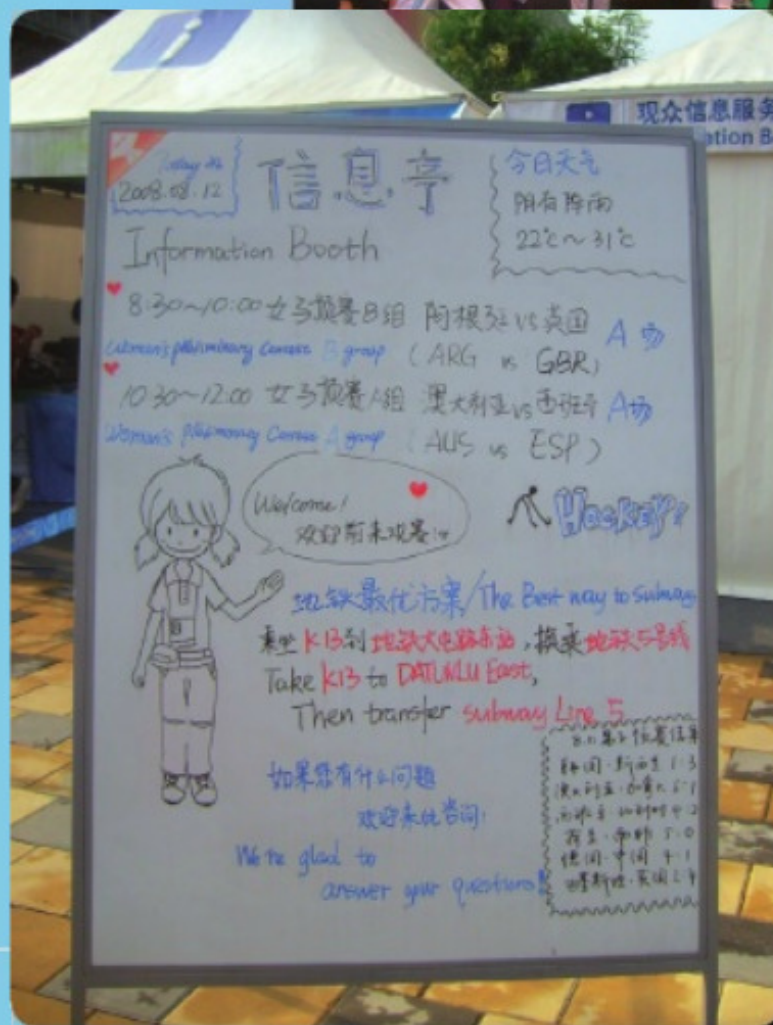 观众信息服务
ation B
Today is
2008.08.12
信息亭
Information Booth
今日天气
阴有降雨
22℃～31℃
8:30～10:00 女子预赛B组 阿根廷vs英国 A场
Women's preliminary B group (ARG vs GBR)
10:30～12:00 女子预赛A组 澳大利亚vs西班牙 A场
Women's preliminary A group (AUS vs ESP)
Welcome!
欢迎前来观赛!
Hockey
地铁最优方案/The Best way to Subway
乘坐K13到地铁大屯路东站,换乘地铁5号线
Take K13 to DATUNLU East,
Then transfer subway Line 5
如果您有什么问题
欢迎来此咨询!
We're glad to
answer your questions!
8.11男子预赛结果
韩国·新西兰 1:3
澳大利亚·加拿大 6:1
荷兰·南非 5:0
德国·中国 4:1
巴基斯坦·英国 2:4